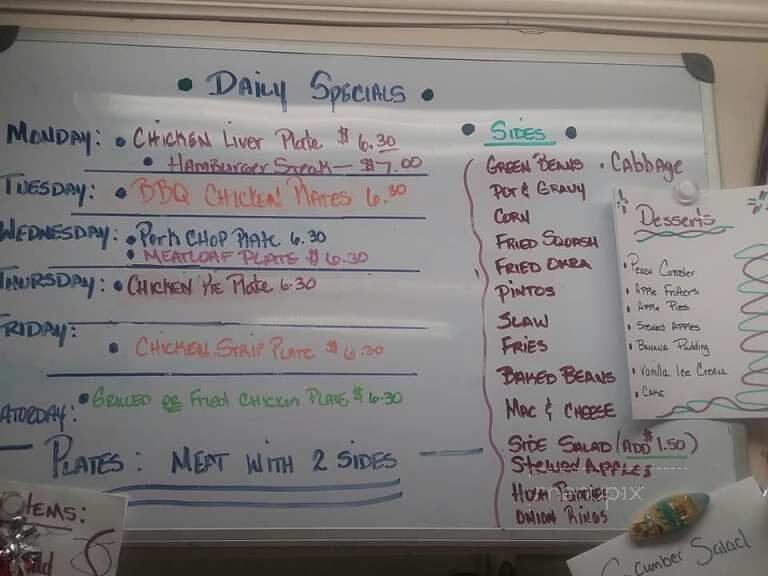 • Daily Specials •
Monday: • Chicken Liver Plate $ 6.30
• Hamburger Steak — $7.00
Tuesday: • BBQ Chicken Plates 6.30
Wednesday: • Pork Chop Plate 6.30
• Meatloaf Plate $ 6.30
Thursday: • Chicken Pie Plate 6.30
Friday:
• Chicken Strip Plate $ 6.30
aturday: • Grilled or Fried Chicken Plate $ 6.30
Plates: Meat with 2 Sides
• Sides •
Green Beans • Cabbage
Pot & Gravy
Corn
Fried Squash
Fried Okra
Pintos
Slaw
Fries
Baked Beans
Mac & Cheese
Side Salad (Add $1.50)
Stewed Apples
Hush Puppies
Onion Rings
Desserts
• Peach Cobbler
• Apple Fritters
• Apple Pies
• Stewed Apples
• Banana Pudding
• Vanilla Ice Cream
• Cake
tems:
menupix
Cucumber Salad